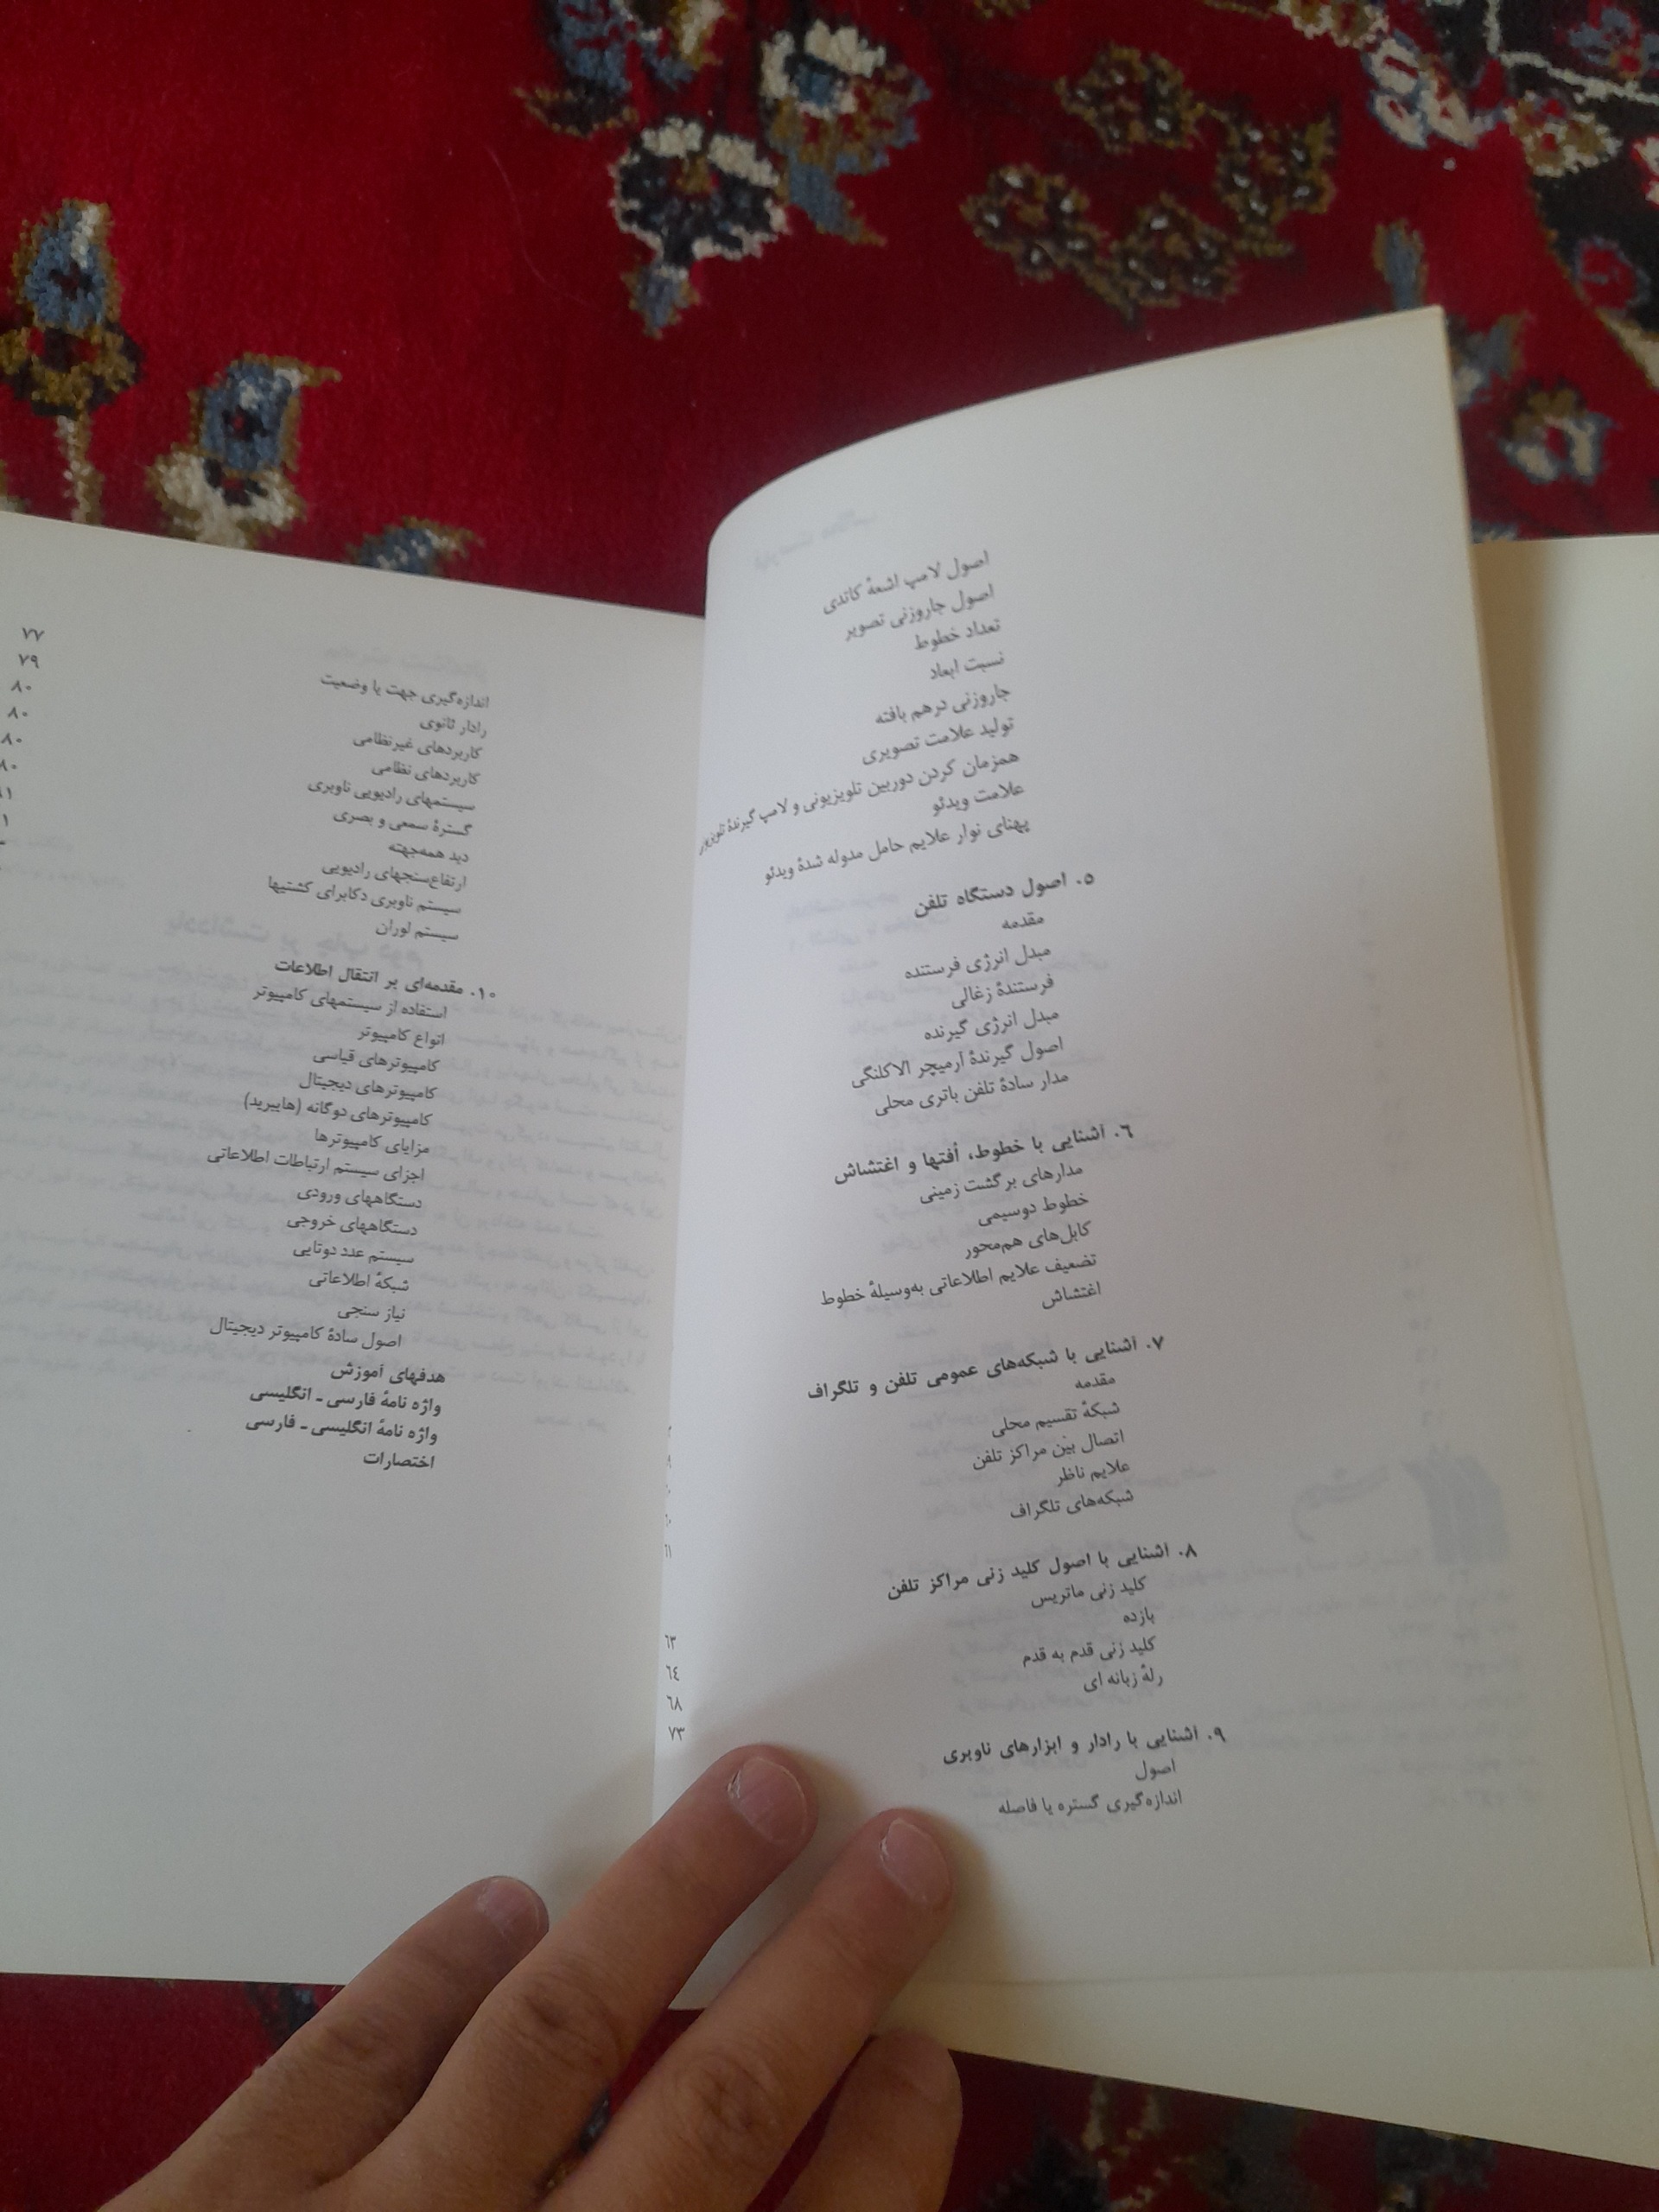 اصول لامپ اشعهٔ کاتدی
اصول جاروزنی تصویر
تعداد خطوط
نسبت ابعاد
جاروزنی درهم بافته
تولید علامت تصویری
همزمان کردن دوربین تلویزیونی و لامپ گیرندهٔ تلویزیونی
علامت ویدئو
پهنای نوار علایم حامل مدوله شدهٔ ویدئو
۵. اصول دستگاه تلفن
مقدمه
مبدل انرژی فرستنده
فرستندهٔ زغالی
مبدل انرژی گیرنده
اصول گیرندهٔ آرمیچر الاکلنگی
مدار سادهٔ تلفن باتری محلی
٦. آشنایی با خطوط، اُفتها و اغتشاش
مدارهای برگشت زمینی
خطوط دوسیمی
کابل‌های هم‌محور
تضعیف علایم اطلاعاتی به‌وسیلهٔ خطوط
اغتشاش
۷. آشنایی با شبکه‌های عمومی تلفن و تلگراف
مقدمه
شبکهٔ تقسیم محلی
اتصال بین مراکز تلفن
علایم ناظر
شبکه‌های تلگراف
۸. آشنایی با اصول کلید زنی مراکز تلفن
کلید زنی ماتریس
بازده
کلید زنی قدم به قدم
رلهٔ زبانه ای
۹. آشنایی با رادار و ابزارهای ناوبری
اصول
اندازه‌گیری گستره یا فاصله
٦٠
٦١
٦۳
٦٤
٦۸
۷۳
اندازه‌گیری جهت یا وضعیت ۷۷
رادار ثانوی ۷۹
کاربردهای غیرنظامی ۸۰
کاربردهای نظامی ۸۰
سیستمهای رادیویی ناوبری ۸۰
گسترهٔ سمعی و بصری ۸۰
دید همه‌جهته
ارتفاع‌سنجهای رادیویی
سیستم ناوبری دکابرای کشتیها
سیستم لوران
۱۰. مقدمه‌ای بر انتقال اطلاعات
استفاده از سیستمهای کامپیوتر
انواع کامپیوتر
کامپیوترهای قیاسی
کامپیوترهای دیجیتال
کامپیوترهای دوگانه (هایبرید)
مزایای کامپیوترها
اجزای سیستم ارتباطات اطلاعاتی
دستگاههای ورودی
دستگاههای خروجی
سیستم عدد دوتایی
شبکهٔ اطلاعاتی
نیاز سنجی
اصول سادهٔ کامپیوتر دیجیتال
هدفهای آموزش
واژه نامهٔ فارسی ـ انگلیسی
واژه نامهٔ انگلیسی ـ فارسی
اختصارات